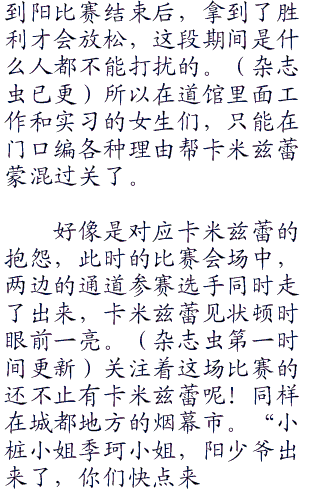 到阳比赛结束后，拿到了胜
利才会放松，这段期间是什
么人都不能打扰的。（杂志
虫已更）所以在道馆里面工
作和实习的女生们，只能在
门口编各种理由帮卡米兹蕾
蒙混过关了。
好像是对应卡米兹蕾的
抱怨，此时的比赛会场中，
两边的通道参赛选手同时走
了出来，卡米兹蕾见状顿时
眼前一亮。（杂志虫第一时
间更新）关注着这场比赛的
还不止有卡米兹蕾呢！同样
在城都地方的烟幕市。“小
桩小姐季珂小姐，阳少爷出
来了，你们快点来